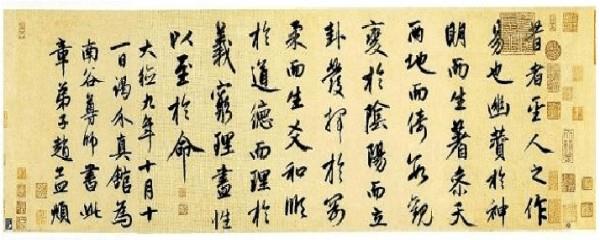 昔者聖人之作
易也幽賛於神
明而生蓍參天
兩地而倚數觀
變於陰陽而立
卦發揮於剛
柔而生爻和順
於道德而理於
義窮理盡性
以至於命
大德九年十月十
一日謁本真館為
南谷尊師書此
章弟子趙孟頫